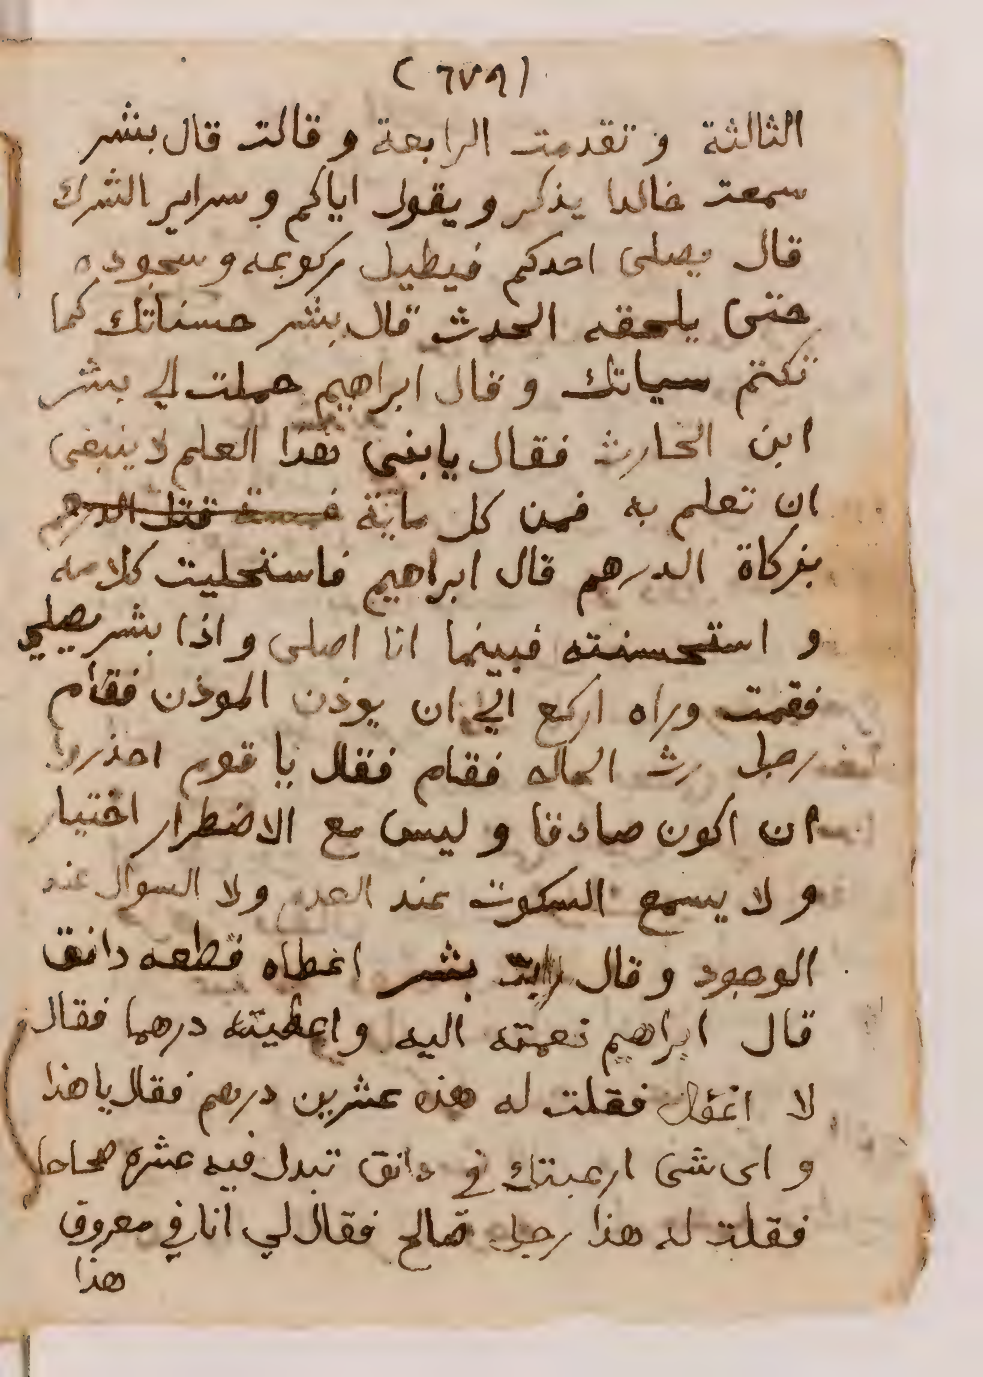 (٦٧٩)
الثالثة و تقدمت الرابعة و قالت قال بشر
سمعت خالدا يذكر و يقول اياكم و سراير الشرك
قال يصلى احدكم فيطيل ركوعه و سجوده
حتى يلحقه الحدث قال بشر حسناتك كما
تكتم سياتك و قال ابراهيم حملت الي بشر
ابن الحارث فقال يا بنى هذا العلم لا ينبغى
ان تعلم به فمن كل ماية
بفركاة الدرهم قال ابراهيم فاستحليت كلامه
و استحسنته فبينما انا اصلى و اذا بشر يصلي
فقمت وراه اركع الي ان يوذن الموذن فقام
رجل رث الحاله فقام فقال يا قوم احذروا
ان اكون صادقا و ليس مع الاضطرار اختيار
و لا يسمع السكوت عند العدم و لا السوال عند
الوجود و قال رايت بشر اعطاه قطعه دانق
قال ابراهيم نعمته اليه و اعطيته درهما فقال
لا افعل فقلت له هذه عشرين درهم فقال يا هذا
و اى شى ارعبتك في دانق تبدل فيه عشره صحاحا
فقلت له هذا رجل صالح فقال لي انا في معروف
هذا